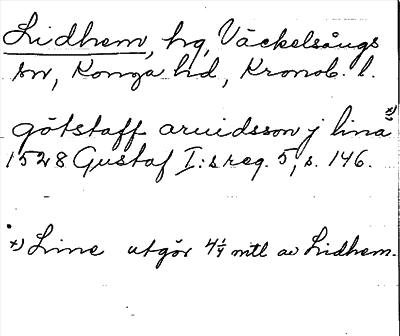 Lidhem, hg, Väckelsångs
sn, Konga hd, Kronob. l.
götstaff aruidsson j lina x)
1528 Gustaf I:s reg. 5, s. 146.
x) Line utgör 4 1/4 mtl av Lidhem.